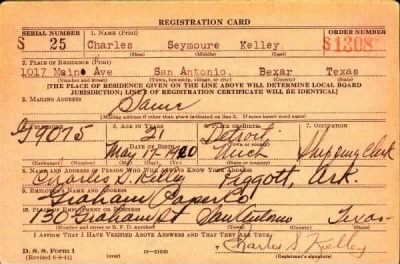 REGISTRATION CARD
SERIAL NUMBER 1. NAME (Print) ORDER NUMBER
S 25 Charles Seymoure Kelley S1308
(First) (Middle) (Last)
2. PLACE OF RESIDENCE (Print)
1017 Maine Ave San Antonio, Bexar Texas
(Number and street) (Town, township, village, or city) (County) (State)
[THE PLACE OF RESIDENCE GIVEN ON THE LINE ABOVE WILL DETERMINE LOCAL BOARD
JURISDICTION; LINE 2 OF REGISTRATION CERTIFICATE WILL BE IDENTICAL]
3. MAILING ADDRESS
Same
[Mailing address if other than place indicated on line 2. If same insert word same]
4. TELEPHONE 5. AGE IN YEARS 6. PLACE OF BIRTH 7. OCCUPATION
G9075 21 Detroit
DATE OF BIRTH
May 17 1920 Mich Shipping Clerk
(Exchange) (Number) (Mo.) (Day) (Yr.) (State or country)
8. NAME AND ADDRESS OF PERSON WHO WILL ALWAYS KNOW YOUR ADDRESS
Charles S. Kelly Piggott, Ark.
9. EMPLOYER'S NAME AND ADDRESS
Graham Paper Co
10. PLACE OF EMPLOYMENT OR BUSINESS
130 Graham St San Antonio Texas
(Number and street or R. F. D. number) (Town) (County) (State)
I AFFIRM THAT I HAVE VERIFIED ABOVE ANSWERS AND THAT THEY ARE TRUE.
D. S. S. Form 1
(Revised 6-9-41) 16-21630
Charles S Kelley
Registrant's signature